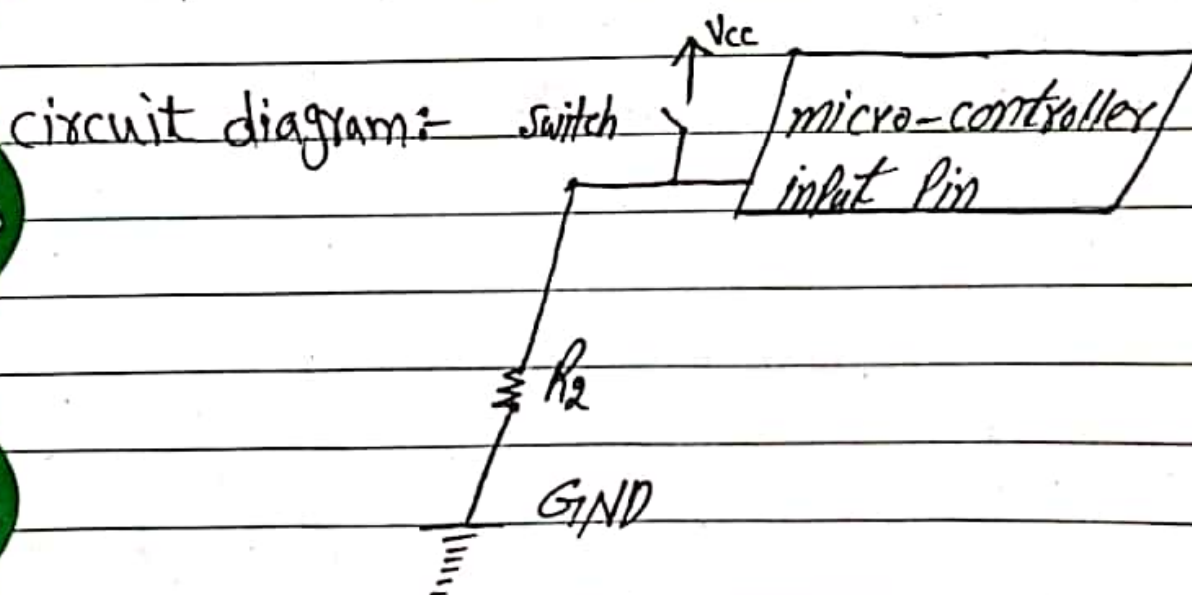 Vcc
circuit diagram:- switch
micro-controller
input Pin
R2
GND